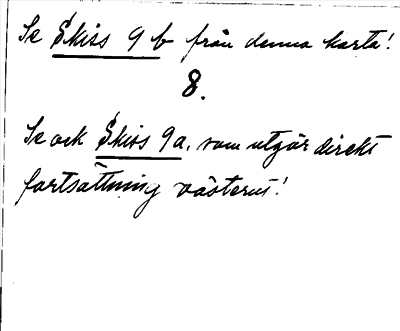 Se Skiss 9 b från denna karta!
8.
Se ock Skiss 9a, som utgör direkt
fortsättning västerut!